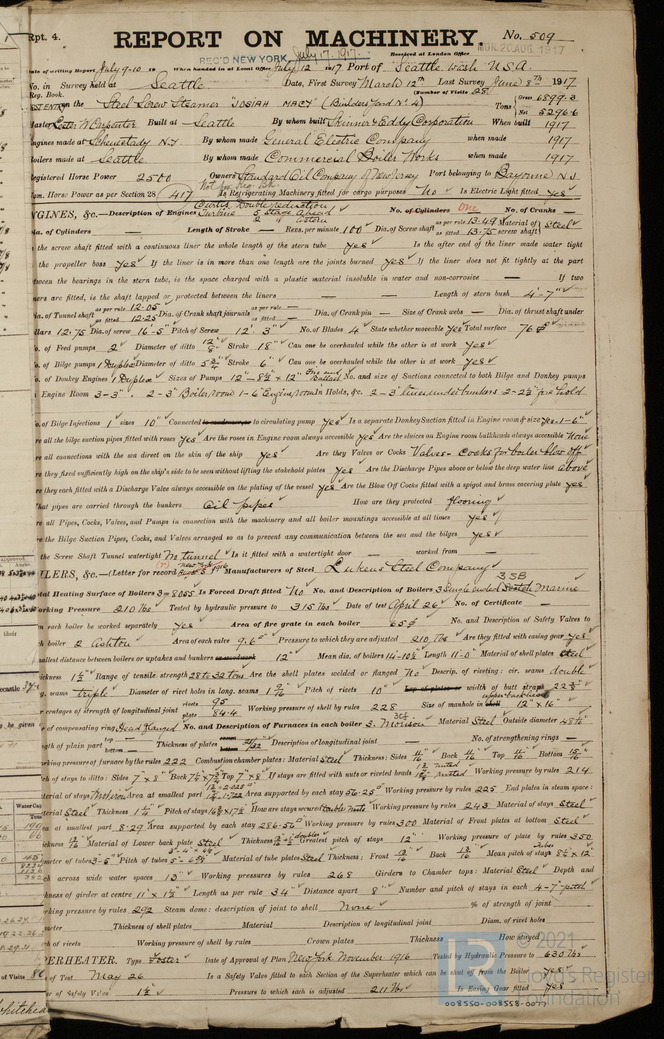 Rpt. 4.
REPORT ON MACHINERY.
No. 509
REC'D NEW YORK July 17. 1917.
Received at London Office MON. 20 AUG. 1917
Date of writing Report July 9-10 19 When handed in at Local Office July 12 1917 Port of Seattle. Wash. U.S.A.
No. in Survey held at Seattle Date, First Survey March 12th Last Survey June 8th 1917
Reg. Book. (Number of Visits 28
on the Steel Screw Steamer "JOSIAH MACY" (Builders Yard No 4) Tons Gross 6899.3 Net 5296.6
Master Lester W Carpenter Built at Seattle By whom built Skinner & Eddy Corporation When built 1917
Engines made at Schenectady N.Y By whom made General Electric Company when made 1917
Boilers made at Seattle By whom made Commercial Boiler Works when made 1917
Registered Horse Power 2500 Owners Standard Oil Company of New Jersey Port belonging to Bayonne NJ
Nom. Horse Power as per Section 28 417 Is Refrigerating Machinery fitted for cargo purposes No Is Electric Light fitted Yes
ENGINES, &c.—Description of Engines Curtis Double reduction Turbine 5 stage ahead 2 " astern No. of Cylinders One No. of Cranks —
Dia. of Cylinders — Length of Stroke — Revs. per minute 100 Dia. of Screw shaft as per rule 13.49 as fitted 13.75 Material of screw shaft Steel
the screw shaft fitted with a continuous liner the whole length of the stern tube Yes Is the after end of the liner made water tight
the propeller boss Yes If the liner is in more than one length are the joints burned Yes If the liner does not fit tightly at the part
between the bearings in the stern tube, is the space charged with a plastic material insoluble in water and non-corrosive — If two
liners are fitted, is the shaft lapped or protected between the liners — Length of stern bush 4'-7"
Dia. of Tunnel shaft as per rule 12.05 as fitted 12.25 Dia. of Crank shaft journals as per rule — as fitted — Dia. of Crank pin — Size of Crank webs — Dia. of thrust shaft under
collars 12.75 Dia. of screw 16'-5" Pitch of Screw 12' 3" No. of Blades 4 State whether moveable Yes Total surface 76
No. of Feed pumps 2 Diameter of ditto 12" 8" Stroke 18" Can one be overhauled while the other is at work Yes
No. of Bilge pumps 1 Duplex Diameter of ditto 5 3/4" Stroke 6" Can one be overhauled while the other is at work Yes
No. of Donkey Engines 1 Duplex Sizes of Pumps 12"-8 1/2" x 12" No. and size of Suctions connected to both Bilge and Donkey pumps
Engine Room 3-3", 2-3" Boiler room 1-6" Engine room In Holds, &c. 2-3" times under bunkers 2-2 1/2" for hold
No. of Bilge Injections 1 sizes 10" Connected to circulating pump Yes Is a separate Donkey Suction fitted in Engine room & size Yes 1-6"
Are all the bilge suction pipes fitted with roses Yes Are the roses in Engine room always accessible Yes Are the sluices on Engine room bulkheads always accessible None
Are all connections with the sea direct on the skin of the ship Yes Are they Valves or Cocks Valves - Cocks for boiler blow off
they fixed sufficiently high on the ship's side to be seen without lifting the stokehold plates Yes Are the Discharge Pipes above or below the deep water line above
they each fitted with a Discharge Valve always accessible on the plating of the vessel Yes Are the Blow Off Cocks fitted with a spigot and brass covering plate Yes
What pipes are carried through the bunkers Oil pipes How are they protected flooring
all Pipes, Cocks, Valves, and Pumps in connection with the machinery and all boiler mountings accessible at all times Yes
the Bilge Suction Pipes, Cocks, and Valves arranged so as to prevent any communication between the sea and the bilges Yes
the Screw Shaft Tunnel watertight No tunnel Is it fitted with a watertight door — worked from —
BOILERS, &c.—(Letter for record (r) Manufacturers of Steel Lukens Steel Company 3 SB
Total Heating Surface of Boilers 3=8055 Is Forced Draft fitted No No. and Description of Boilers 3 Single ended Scotch Marine
Working Pressure 210 lbs Tested by hydraulic pressure to 315 lbs Date of test April 26 No. of Certificate —
Can each boiler be worked separately Yes Area of fire grate in each boiler 65 No. and Description of Safety Valves to
each boiler 2 Ashton Area of each valve 9.6 Pressure to which they are adjusted 210 lbs Are they fitted with easing gear Yes
Smallest distance between boilers or uptakes and bunkers 12" Mean dia. of boilers 14-10 1/2 Length 11-0" Material of shell plates Steel
Thickness 1 1/2" Range of tensile strength 28 to 32 tons Are the shell plates welded or flanged No Descrip. of riveting: cir. seams double
long. seams triple Diameter of rivet holes in long. seams Pitch of rivets 10" width of butt straps 22 3/4"
Percentages of strength of longitudinal joint rivets 95 plate 84.4 Working pressure of shell by rules 228 Size of manhole in upper back head 12" x 16"
of compensating ring Head flanged No. and Description of Furnaces in each boiler 3. Morison Material Steel Outside diameter 48 1/2"
Length of plain part top bottom Thickness of plates 21/32 Description of longitudinal joint — No. of strengthening rings —
Working pressure of furnace by the rules 222 Combustion chamber plates: Material Steel Thickness: Sides 11/16" Back 11/16" Top 11/16" Bottom 15/16"
Pitch of stays to ditto: Sides 7" x 8" Back 7 1/2" x 7 3/4" Top 7" x 8" If stays are fitted with nuts or riveted heads riveted Working pressure by rules 214
Material of stays Area at smallest part Area supported by each stay 56.25 Working pressure by rules 225 End plates in steam space:
Material Steel Thickness 1 1/4" Pitch of stays 16 3/4 x 17 1/2 How are stays secured Double nuts Working pressure by rules 243 Material of stays Steel
Area at smallest part 8.29 Area supported by each stay 286.56 Working pressure by rules 300 Material of Front plates at bottom Steel
Thickness Material of Lower back plate Steel Thickness Greatest pitch of stays 12" Working pressure of plate by rules 350
Diameter of tubes 3-5" Pitch of tubes Material of tube plates Steel Thickness: Front 13/16" Back 13/16" Mean pitch of stays 8 1/2 x 12"
Pitch across wide water spaces 13" Working pressures by rules 268 Girders to Chamber tops: Material Steel Depth and
thickness of girder at centre 11" x 1 1/2" Length as per rule 34" Distance apart 8" Number and pitch of stays in each 4-7" pitch
Working pressure by rules 292 Steam dome: description of joint to shell None % of strength of joint
Thickness of shell plates Material Description of longitudinal joint Diam. of rivet holes
Pitch of rivets Working pressure of shell by rules Crown plates Thickness How stayed
SUPERHEATER. Type Foster Date of Approval of Plan New York November 1916 Tested by Hydraulic Pressure to 630 lbs
Date of Test May 26 Is a Safety Valve fitted to each Section of the Superheater which can be shut off from the Boiler
Diameter of Safety Valve 1 1/2" Pressure to which each is adjusted 211 lbs Is Easing Gear fitted Yes
© 2021
Lloyd's Register
Foundation
008550-008558-0077